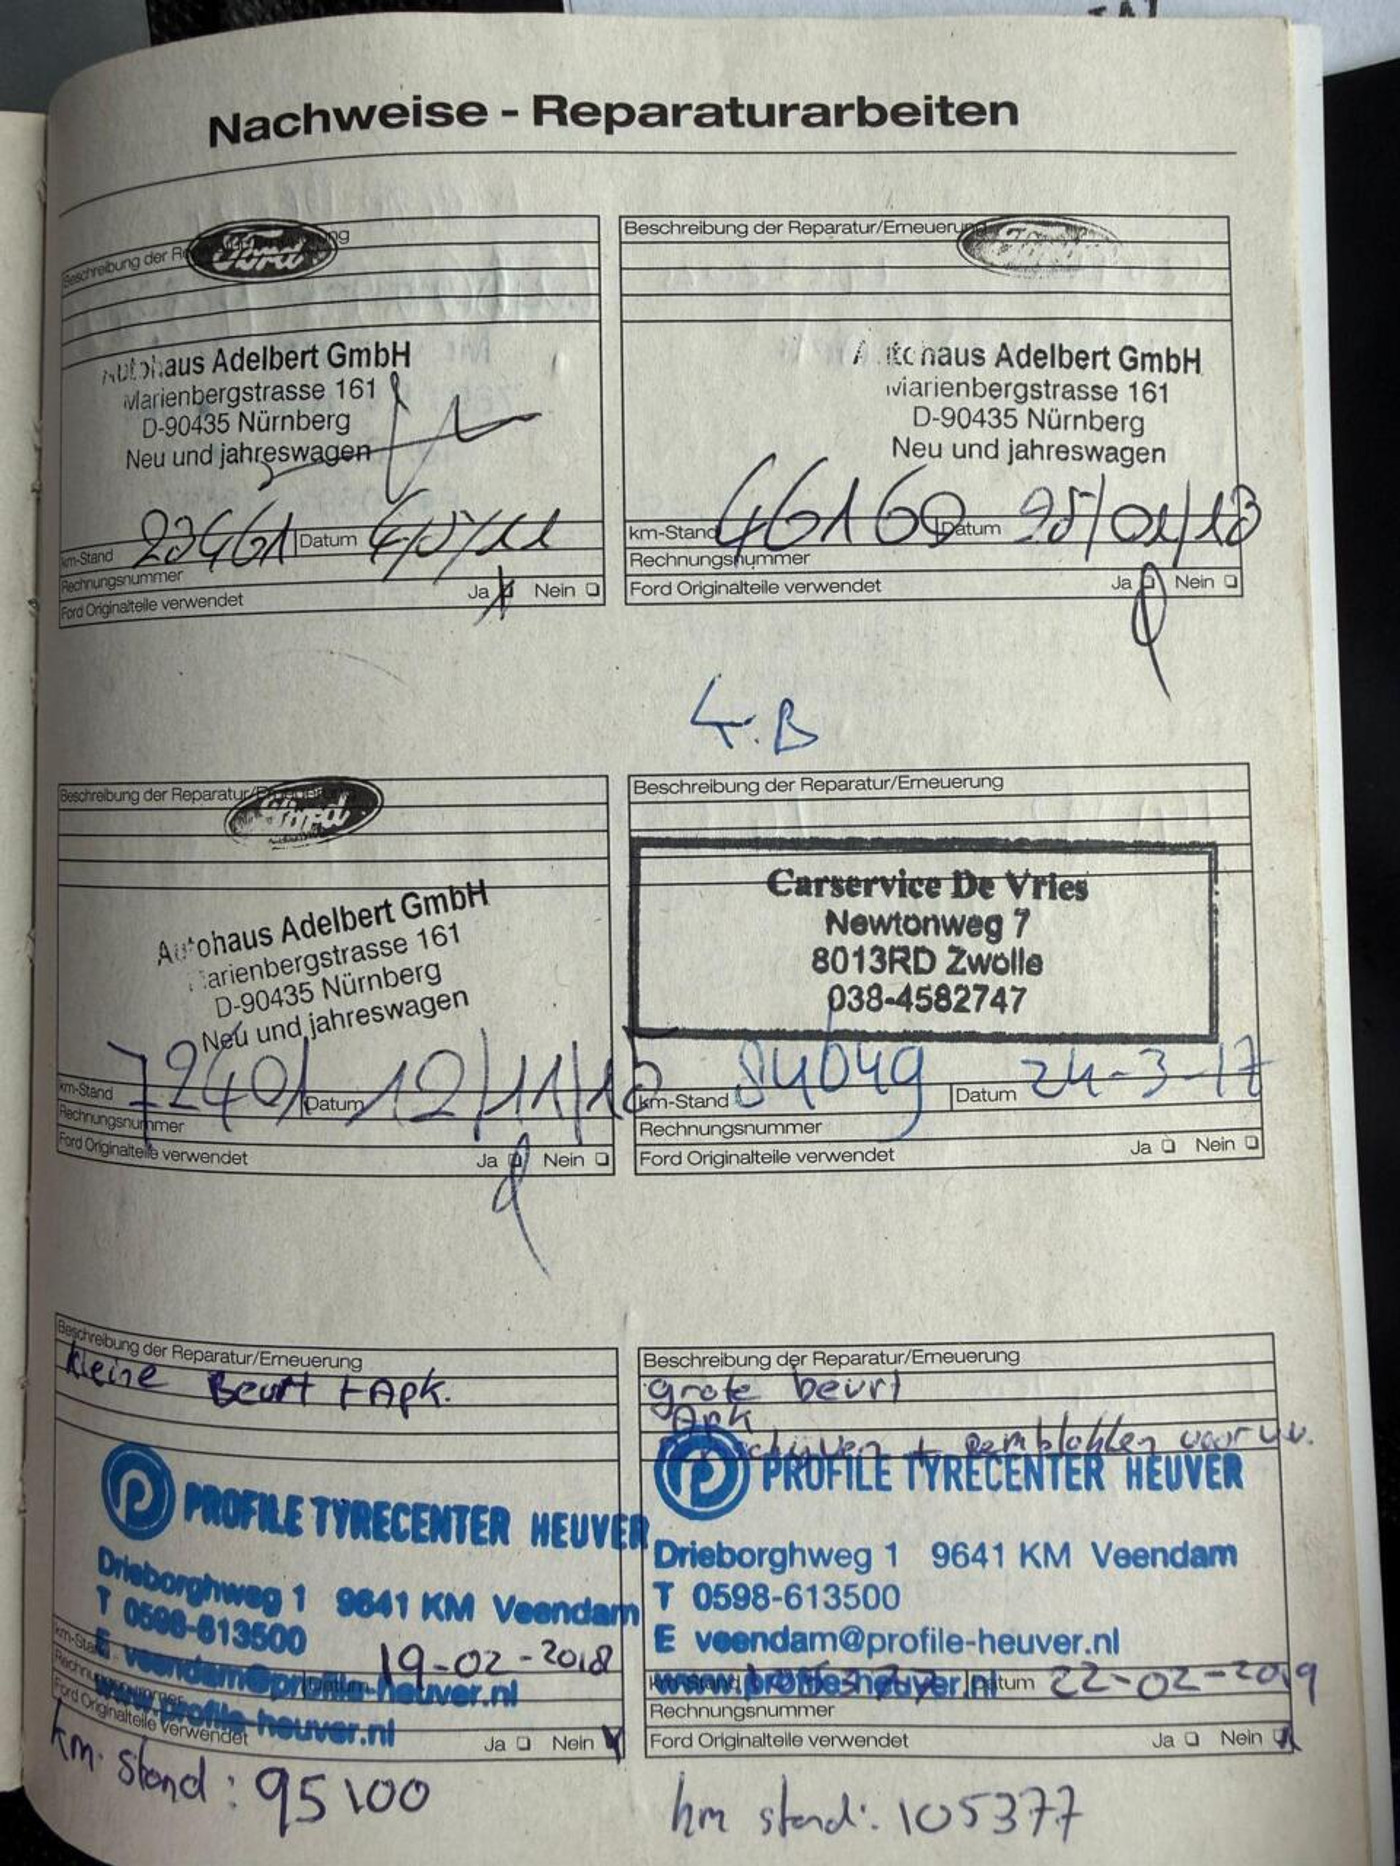 Nachweise - Reparaturarbeiten
Beschreibung der
Ford
Autohaus Adelbert GmbH
Marienbergstrasse 161
D-90435 Nürnberg
Neu und jahreswagen
km-Stand 23461 Datum
Rechnungsnummer
Ford Originalteile verwendet Ja Nein
Beschreibung der Reparatur/Erneuerung
Ford
Autohaus Adelbert GmbH
Marienbergstrasse 161
D-90435 Nürnberg
Neu und jahreswagen
km-Stand 46160 Datum
Rechnungsnummer
Ford Originalteile verwendet Ja Nein
Beschreibung der Reparatur/Erneuerung
Ford
Autohaus Adelbert GmbH
Marienbergstrasse 161
D-90435 Nürnberg
Neu und jahreswagen
km-Stand 72401 Datum
Rechnungsnummer
Ford Originalteile verwendet Ja Nein
Beschreibung der Reparatur/Erneuerung
Carservice De Vries
Newtonweg 7
8013RD Zwolle
038-4582747
km-Stand 84049 Datum 24-3-17
Rechnungsnummer
Ford Originalteile verwendet Ja Nein
Beschreibung der Reparatur/Erneuerung
kleine Beurt + Apk.
PROFILE TYRECENTER HEUVER
Drieborghweg 1 9641 KM Veendam
T 0598-613500
E veendam@profile-heuver.nl
km-Stand Datum 19-02-2018
www.profile-heuver.nl
Rechnungsnummer
Ford Originalteile verwendet Ja Nein
km. stand: 95100
Beschreibung der Reparatur/Erneuerung
grote beurt
Apk
+ remblokken voor v.v.
PROFILE TYRECENTER HEUVER
Drieborghweg 1 9641 KM Veendam
T 0598-613500
E veendam@profile-heuver.nl
www.profile-heuver.nl
km-Stand Datum 22-02-2019
Rechnungsnummer
Ford Originalteile verwendet Ja Nein
km stand: 105377